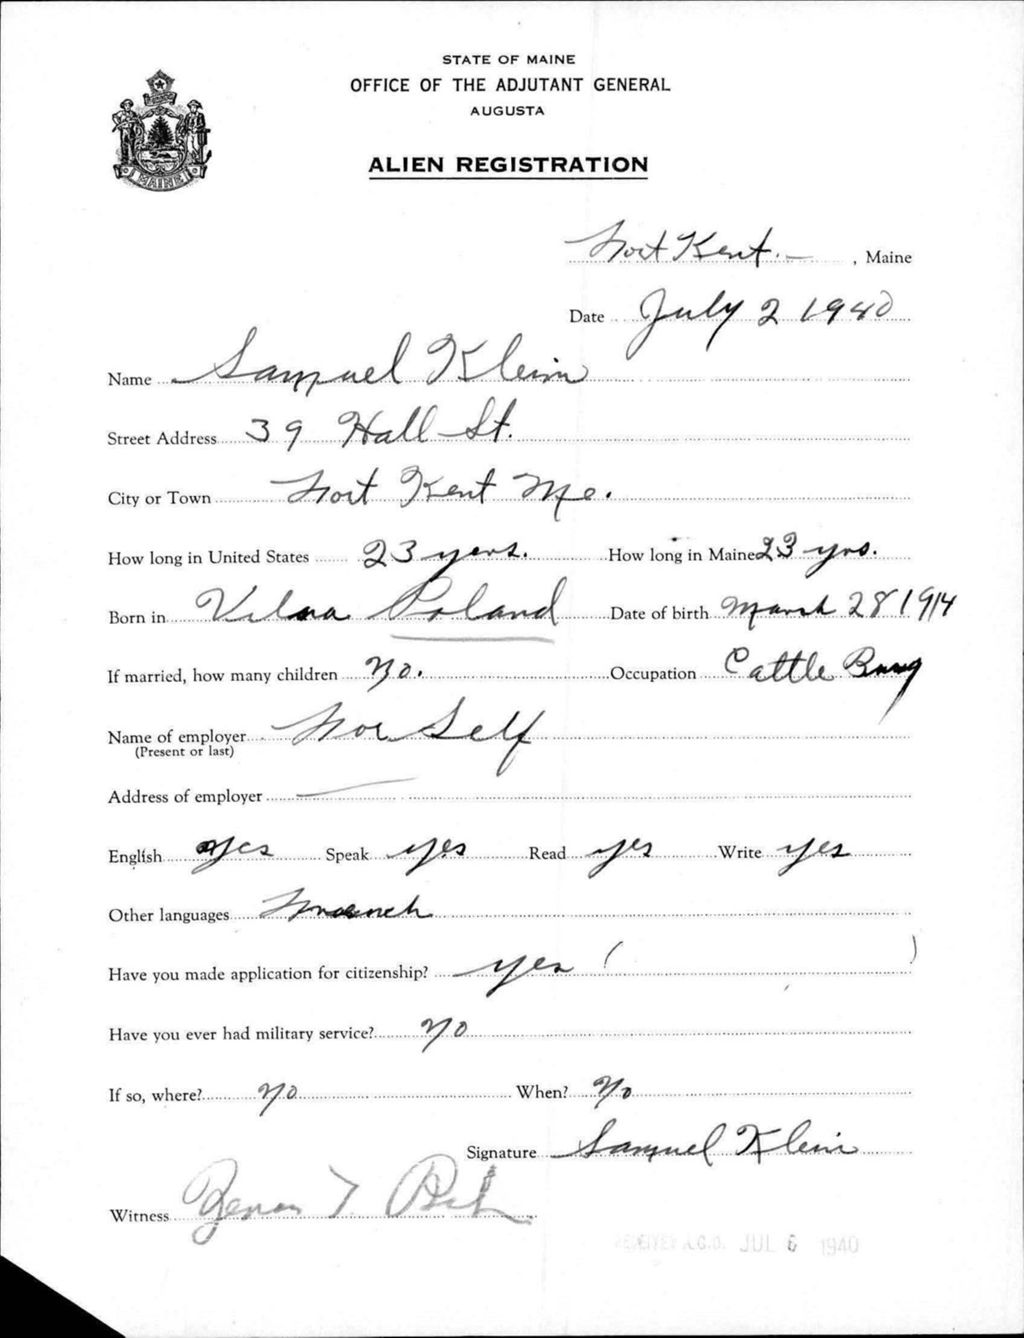 STATE OF MAINE
OFFICE OF THE ADJUTANT GENERAL
AUGUSTA
MAINE
ALIEN REGISTRATION
Fort Kent. , Maine
Date July 2 1940
Name Samuel Klein
Street Address 39 Hall St.
City or Town Fort Kent Me.
How long in United States 23 years. How long in Maine 23 yrs.
Born in Vilna Poland Date of birth March 28 1914
If married, how many children No. Occupation Cattle
Name of employer For Self
(Present or last)
Address of employer
English Yes Speak yes Read yes Write yes
Other languages French
Have you made application for citizenship? yes ( )
Have you ever had military service? No
If so, where? No When? No
Signature Samuel Klein
Witness
RECEIVED A.G.O. JUL 6 1940